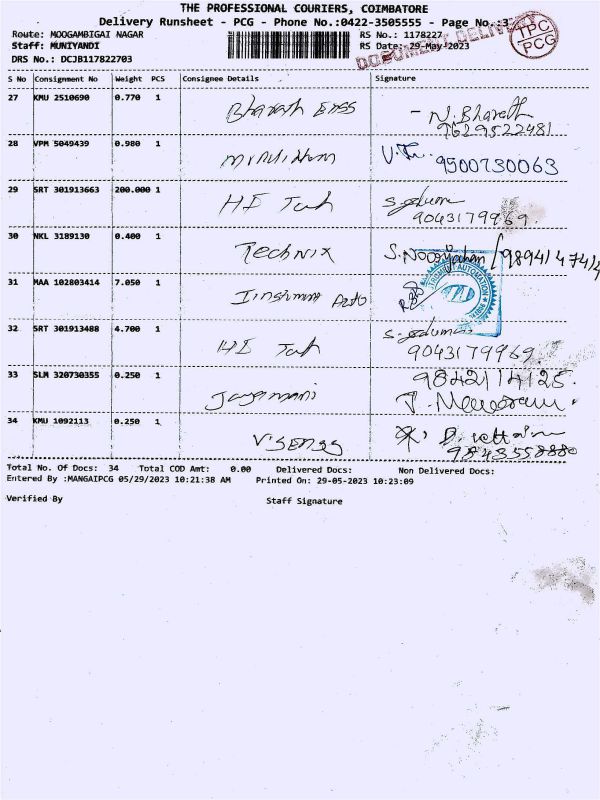 THE PROFESSIONAL COURIERS, COIMBATORE
Delivery Runsheet - PCG - Phone No.:0422-3505555 - Page No.:3
TPC
PCG
DOCUMENT DELIVERY
Route: MOOGAMBIGAI NAGAR RS No.: 1178227
Staff: MUNIYANDI RS Date: 29-May-2023
DRS No.: DCJB117822703
S No Consignment No Weight PCS Consignee Details Signature
27 KMU 2510690 0.770 1 Bharath Engs N. Bharath
9629522481
28 VPM 5049439 0.980 1 9500730063
29 SRT 301913663 200.000 1 HI Tech
9043179969.
30 NKL 3189130 0.400 1 Technix
31 MAA 102803414 7.050 1 Auto
AUTOMATION
32 SRT 301913488 4.700 1 HI Tech
9043179969.
33 SLM 320730355 0.250 1 Jayamani 9842114125.
34 KMU 1092113 0.250 1 V'Sengs
9843558880
Total No. Of Docs: 34 Total COD Amt: 0.00 Delivered Docs: Non Delivered Docs:
Entered By :MANGAIPCG 05/29/2023 10:21:38 AM Printed On: 29-05-2023 10:23:09
Verified By Staff Signature